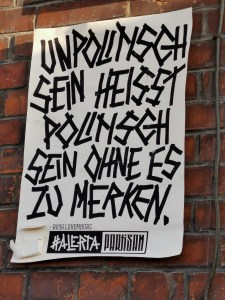 UNPOLITISCH
SEIN HEISST
POLITISCH
SEIN OHNE ES
ZU MERKEN.
-ROSA LUXEMBURG
#ALERTA